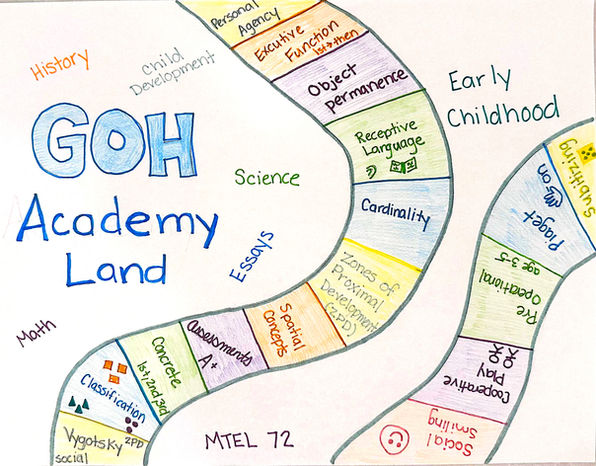 Personal
Agency
Excutive
Function
1st→then
Object
permanence
Receptive
Language
Cardinality
Zones of
Proximal
Development
(ZPD)
Spatial
Concepts
Assessments
A+
Concrete
1st, 2nd, 3rd
Classification
Vygotsky ZPD
social
History
Child
Development
GOH
Academy
Land
Science
Essays
Math
MTEL 72
Early
Childhood
Subitizing
Piaget
on
Pre
Operational
age 3-5
Cooperative
Play
Social
Smiling